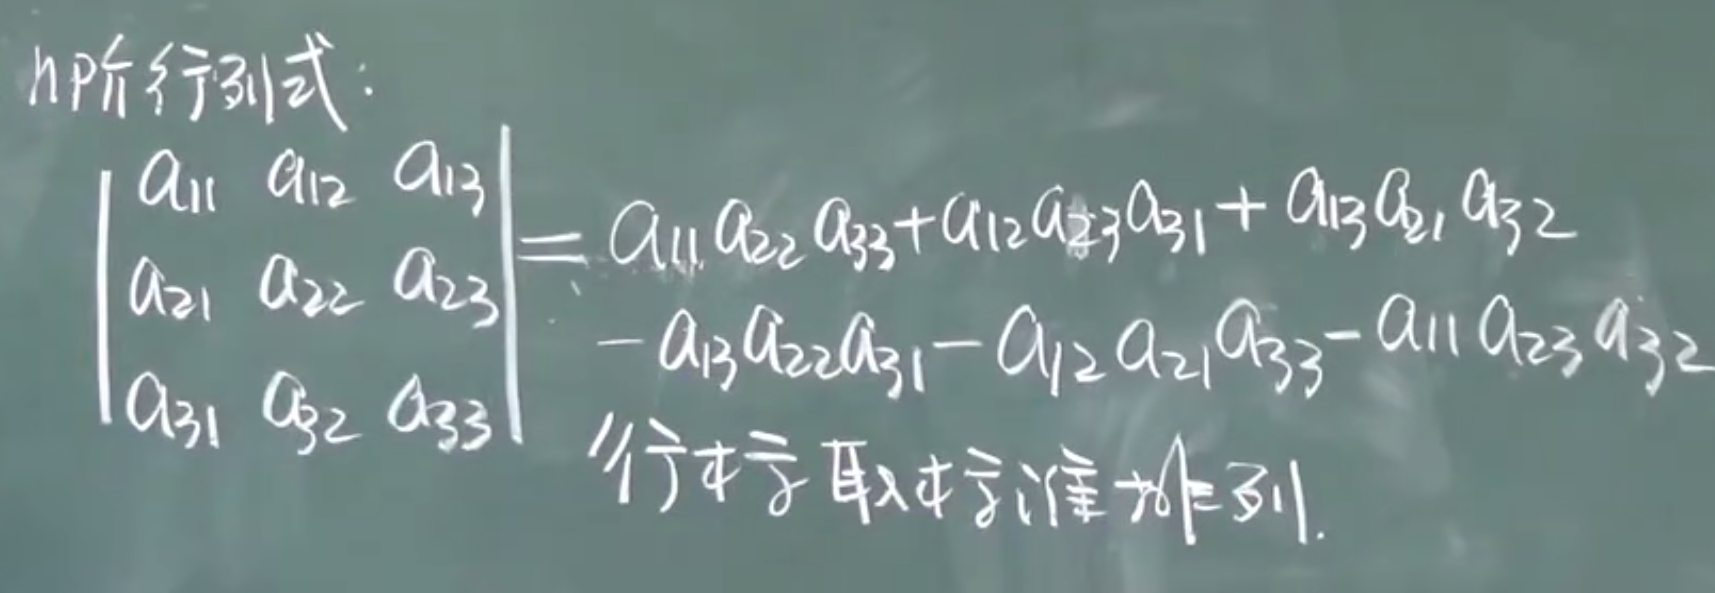 n阶行列式:
| a11 a12 a13 |
| a21 a22 a23 |
| a31 a32 a33 |
= a11 a22 a33 + a12 a23 a31 + a13 a21 a32
- a13 a22 a31 - a12 a21 a33 - a11 a23 a32
行标取标准排列.